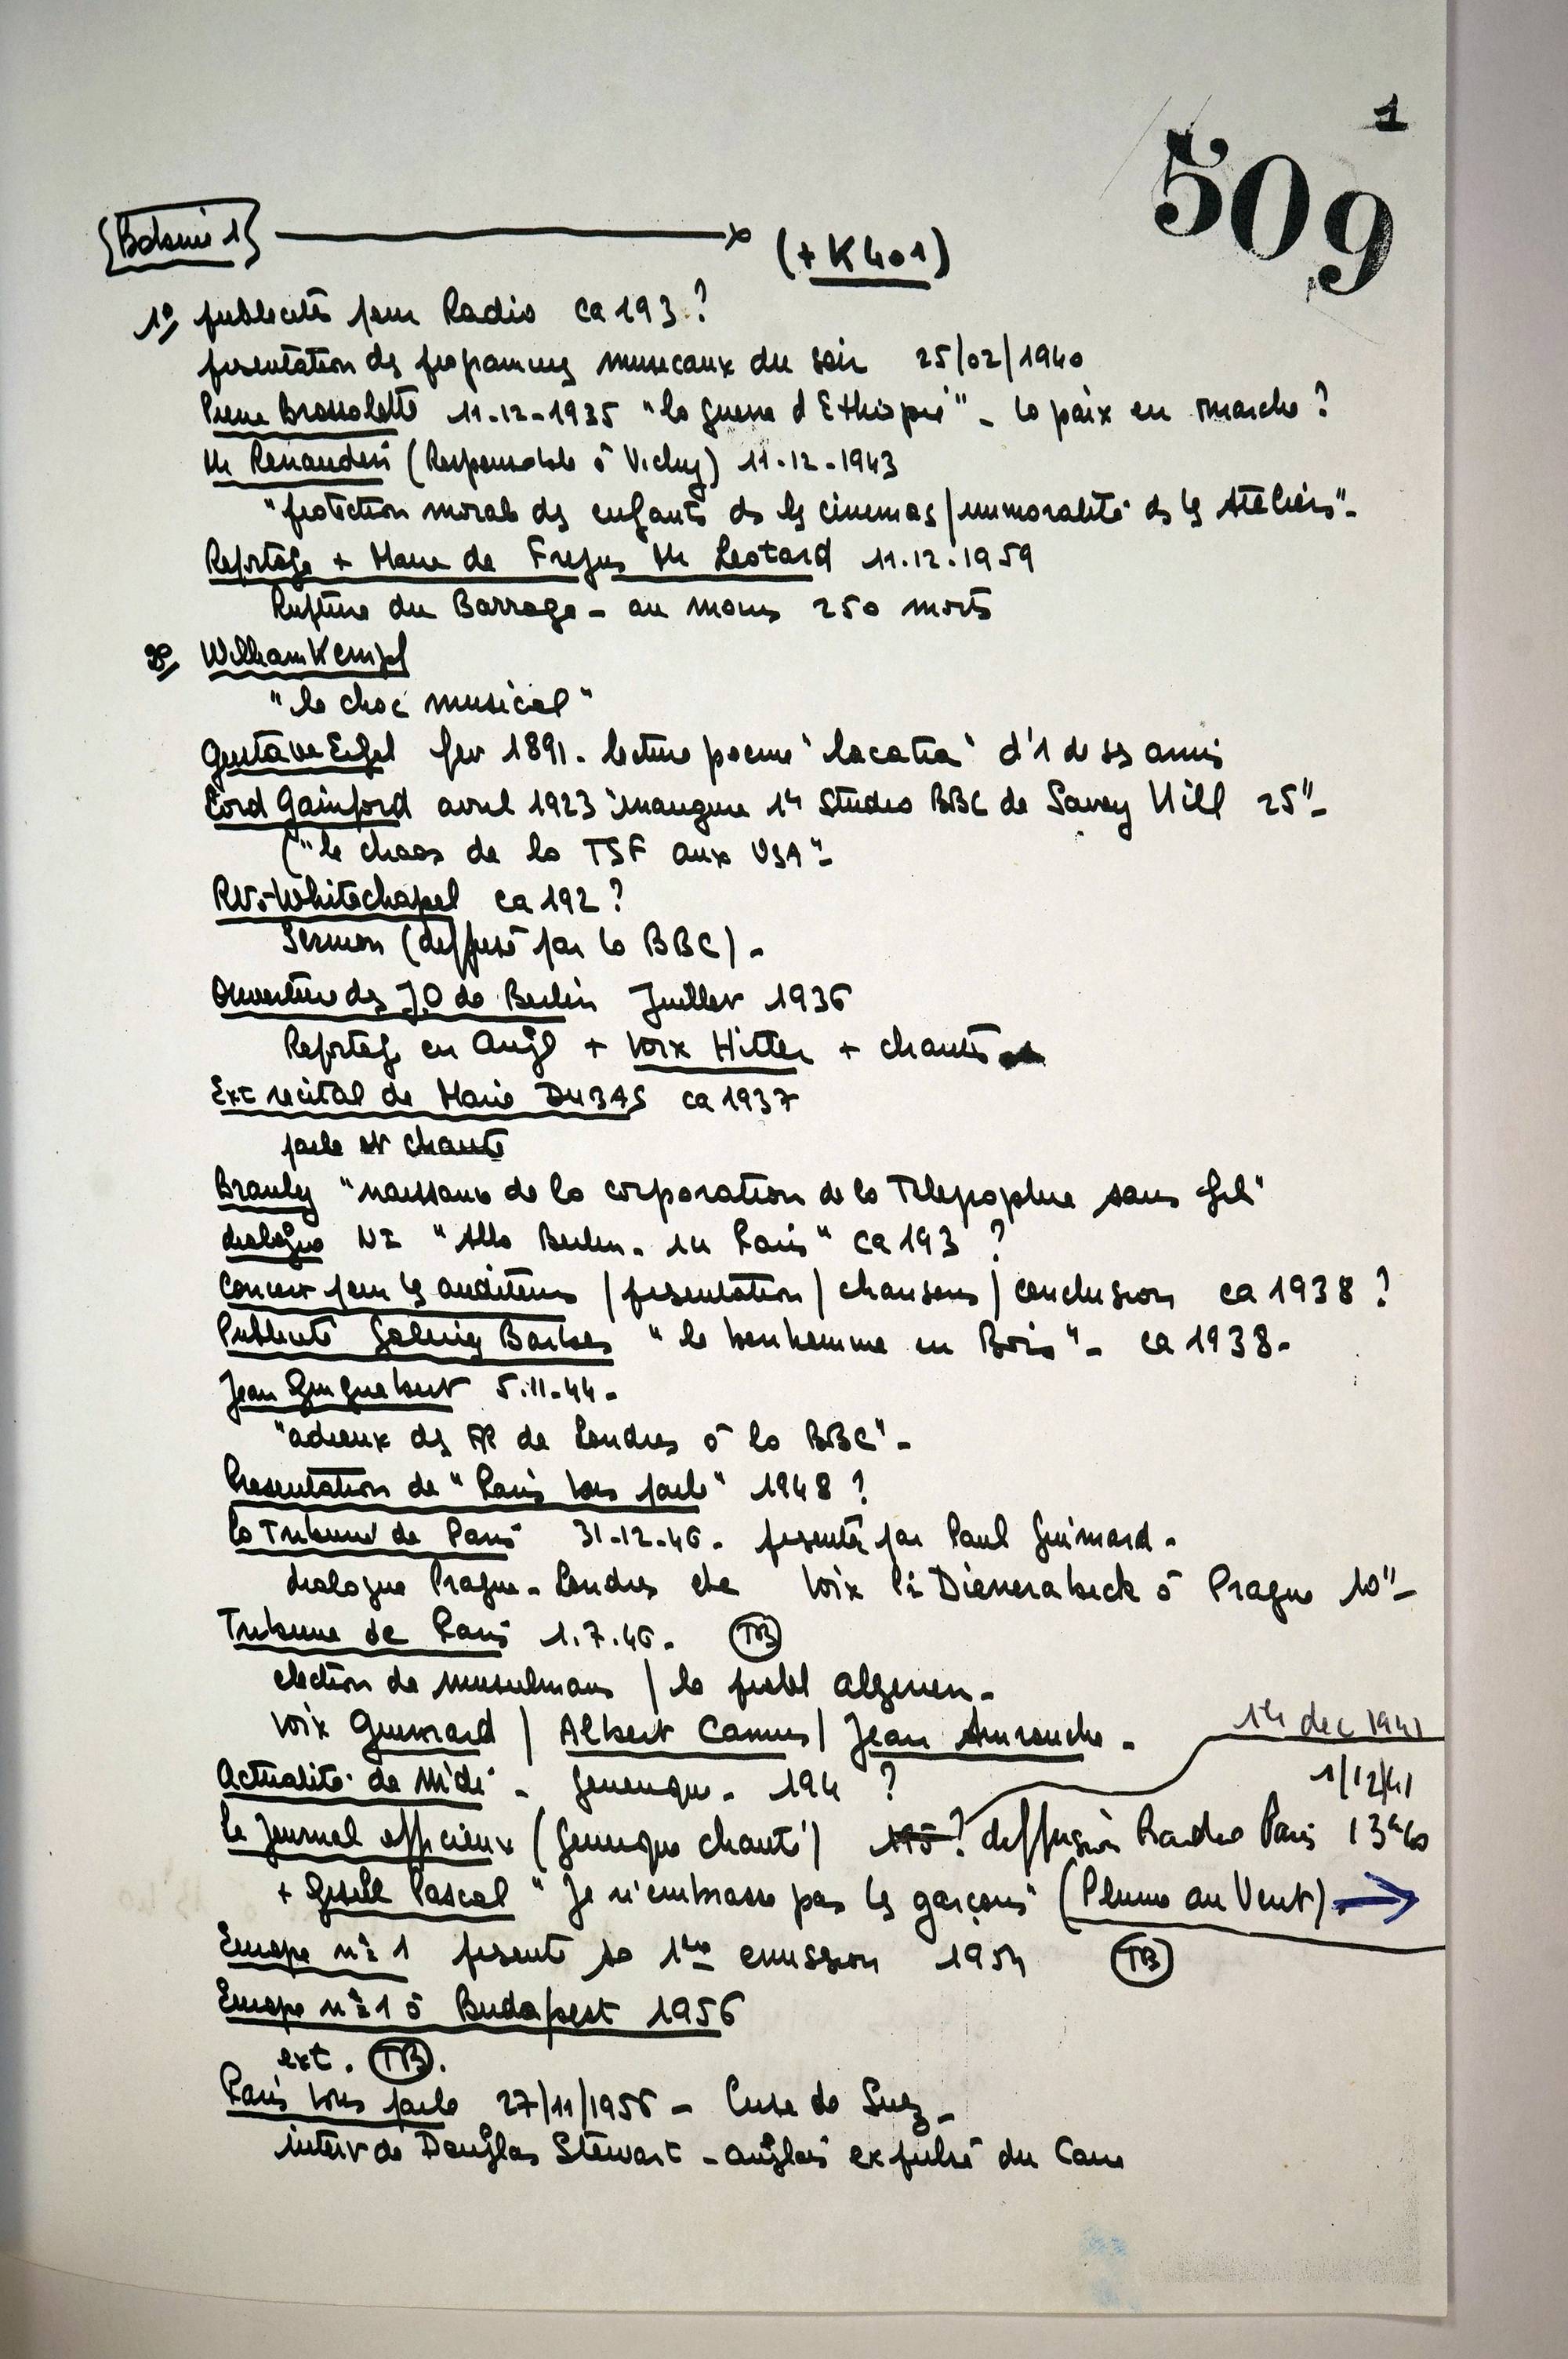 1
509
(+ K401)
1º publicités pour Radio ca 193.?
presentation des programmes musicaux du soir 25/02/1940
Pierre Brossolette 11-12-1935 "la guerre d'Ethiopie" - la paix en marche ?
Mr Renaudin (Responsable à Vichy) 11-12-1943
"protection morale des enfants ds les cinemas / immoralité ds les Ateliers" -
Reportage + Maire de Frejus Mr Leotard 11.12.1959
Rupture du Barrage - au moins 250 morts
2º William Kempf
"le choc musical"
Gustave Eifel fev 1891. lecture poeme d'1 de ses amis
Lord Gainford avril 1923 inaugure 1er Studio BBC de Savoy Hill 25" -
("le chaos de la TSF aux USA" -
RV.-Whitechapel ca 192 ?
Sermon (diffusé par la BBC) -
Ouverture des JO de Berlin Juillet 1936
Reportage en Angl + Voix Hitler + chants
Ext recital de Marie DUBAS ca 1937
parle et chante
Branly "naissance de la corporation de la sans fil"
dialogue "Allo Berlin. ici Paris" ca 193 ?
Concert pour les auditeurs / presentation / chansons / conclusion ca 1938 ?
Publicité Galeries Barbes "le bonhomme en Bois" - ca 1938 -
Jean Guignebert 5.11-44 -
"adieux des FR de Londres à la BBC" -
Presentation de "Paris vous parle" 1948 ?
la Tribune de Paris 31-12-46. presenté par Paul Guimard -
dialogue Prague - Londres etc Voix à Prague 10" -
Tribune de Paris 1.7.46. TB
election de musulmans / le probl algerien -
Voix Guimard / Albert Camus / Jean Amrouche -
14 dec 1941
Actualité de Midi - Generique - 194 ?
1/12/41
Le Journal officieux (Generique chanté) ? diffusion Radio Paris 13h40
+ Giselle Pascal "Je n'embrasse pas les garçons" (Plume au Vent) →
Europe nº 1 presente sa 1ère emission 1954 TB
Europe nº 1 à Budapest 1956
ext. TB.
Paris vous parle 27/11/1956 - Crise de Suez -
interv de Douglas Stewart - anglais expulsé du Caire